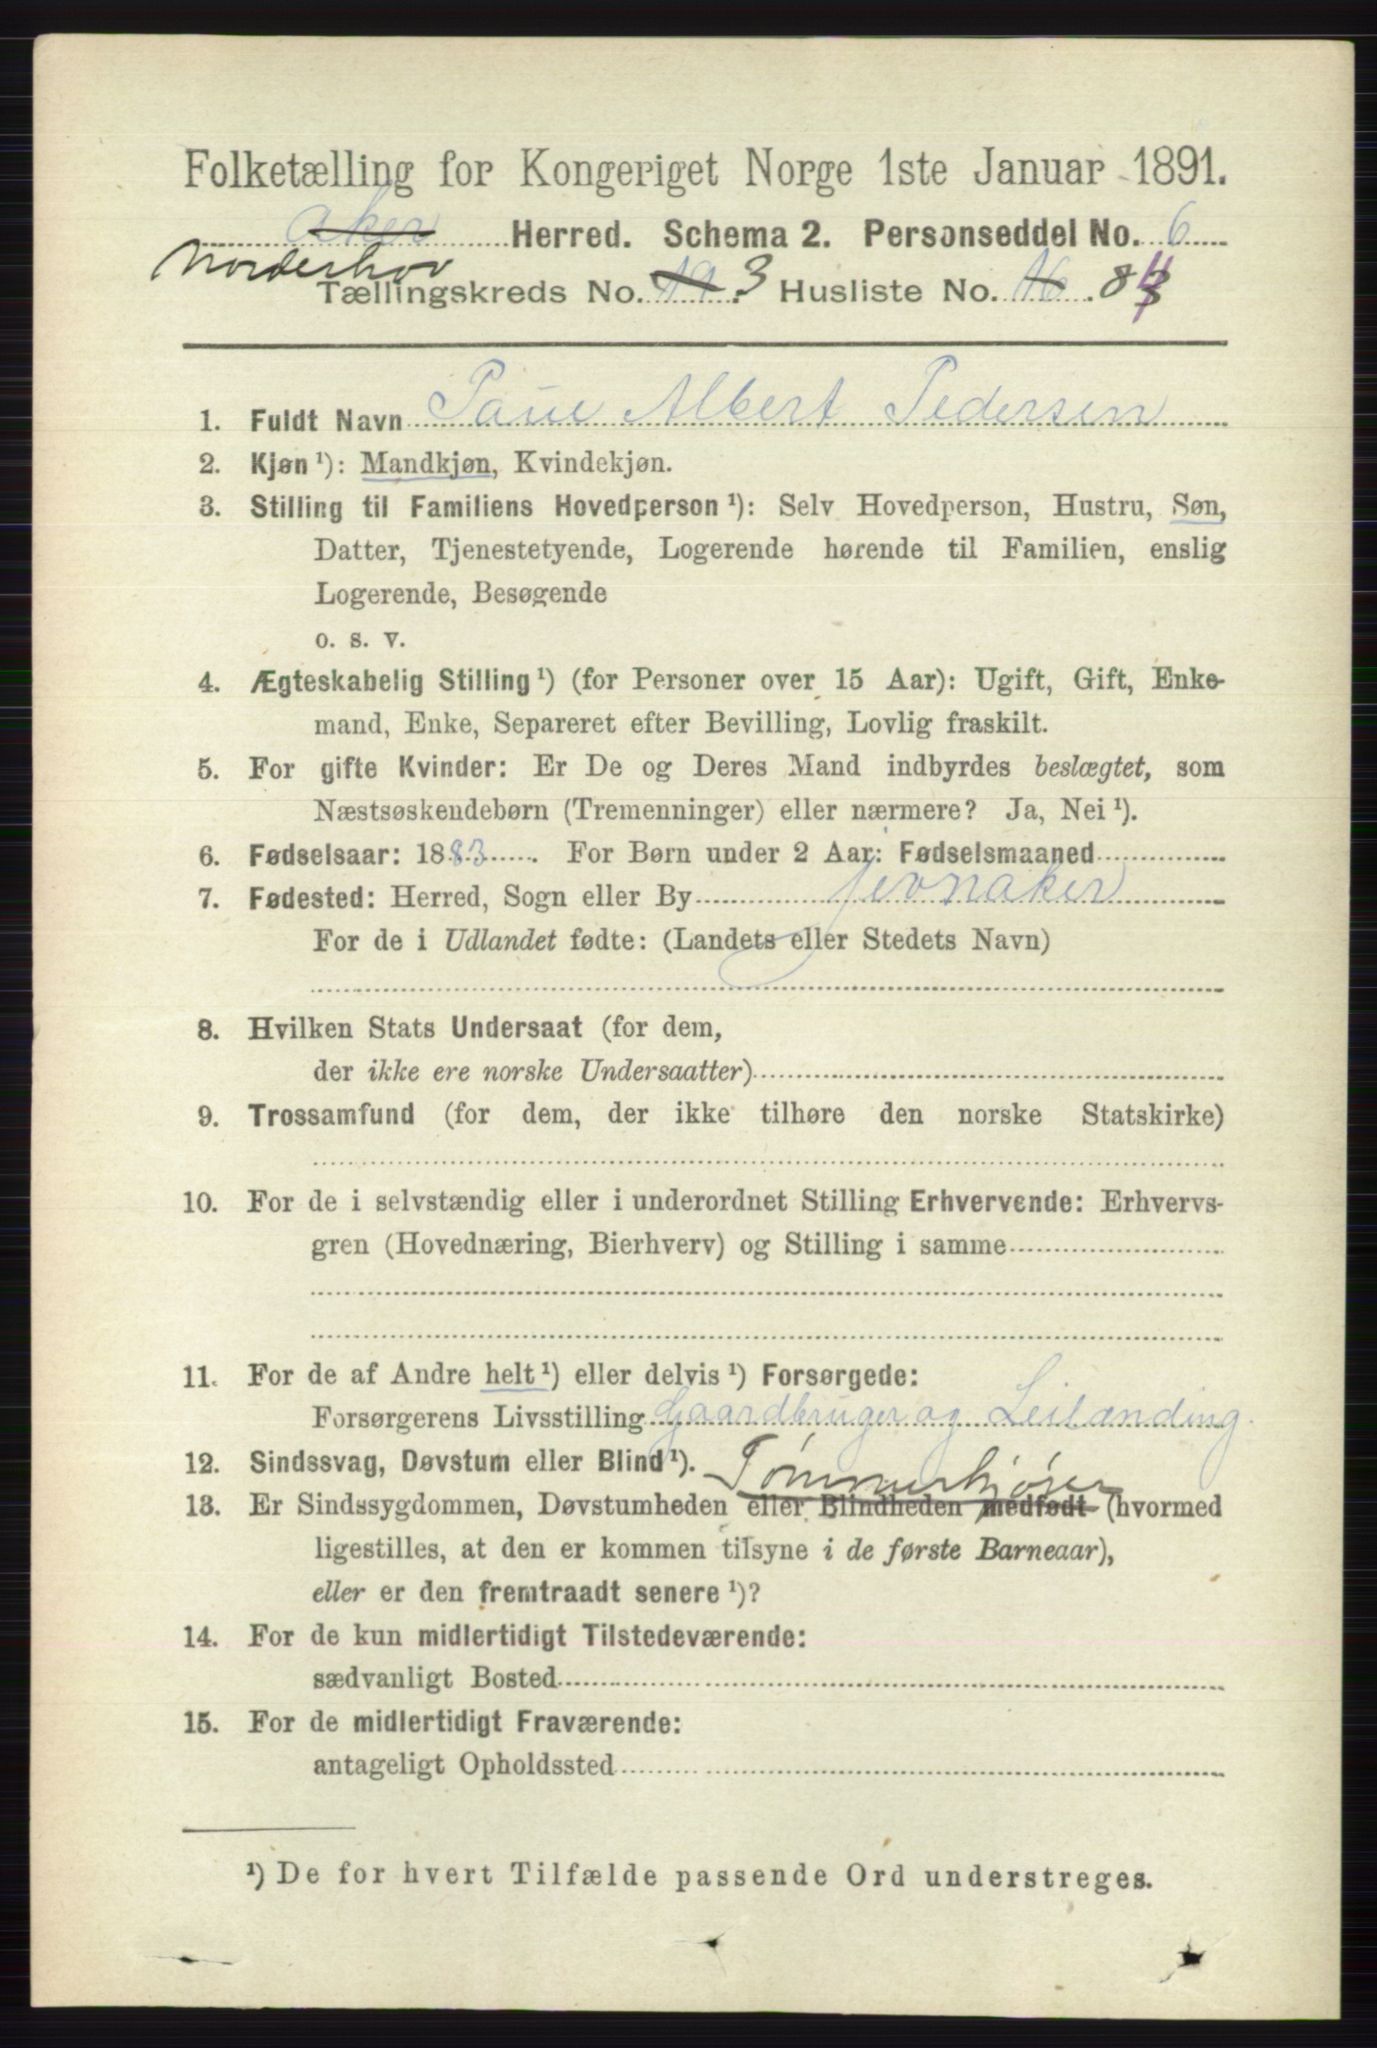 Folketælling for Kongeriget Norge 1ste Januar 1891.
Aker Herred. Schema 2. Personseddel No. 6
Norderhov
Tællingskreds No. 19. 3 Husliste No. 16. 84
1. Fuldt Navn Paul Albert Pedersen
2. Kjøn ¹): Mandkjøn, Kvindekjøn.
3. Stilling til Familiens Hovedperson ¹): Selv Hovedperson, Hustru, Søn,
Datter, Tjenestetyende, Logerende hørende til Familien, enslig
Logerende, Besøgende
o. s. v.
4. Ægteskabelig Stilling ¹) (for Personer over 15 Aar): Ugift, Gift, Enke-
mand, Enke, Separeret efter Bevilling, Lovlig fraskilt.
5. For gifte Kvinder: Er De og Deres Mand indbyrdes beslægtet, som
Næstsøskendebørn (Tremenninger) eller nærmere? Ja, Nei ¹).
6. Fødselsaar: 1883. For Børn under 2 Aar: Fødselsmaaned
7. Fødested: Herred, Sogn eller By Jevnaker
For de i Udlandet fødte: (Landets eller Stedets Navn)
8. Hvilken Stats Undersaat (for dem,
der ikke ere norske Undersaatter)
9. Trossamfund (for dem, der ikke tilhøre den norske Statskirke)
10. For de i selvstændig eller i underordnet Stilling Erhvervende: Erhvervs-
gren (Hovednæring, Bierhverv) og Stilling i samme
11. For de af Andre helt ¹) eller delvis ¹) Forsørgede:
Forsørgerens Livsstilling Gaardbruger og Leilænding.
12. Sindssvag, Døvstum eller Blind ¹). Tømmerkjører
13. Er Sindssygdommen, Døvstumheden eller Blindheden medfødt (hvormed
ligestilles, at den er kommen tilsyne i de første Barneaar),
eller er den fremtraadt senere ¹)?
14. For de kun midlertidigt Tilstedeværende:
sædvanligt Bosted
15. For de midlertidigt Fraværende:
antageligt Opholdssted
¹) De for hvert Tilfælde passende Ord understreges.